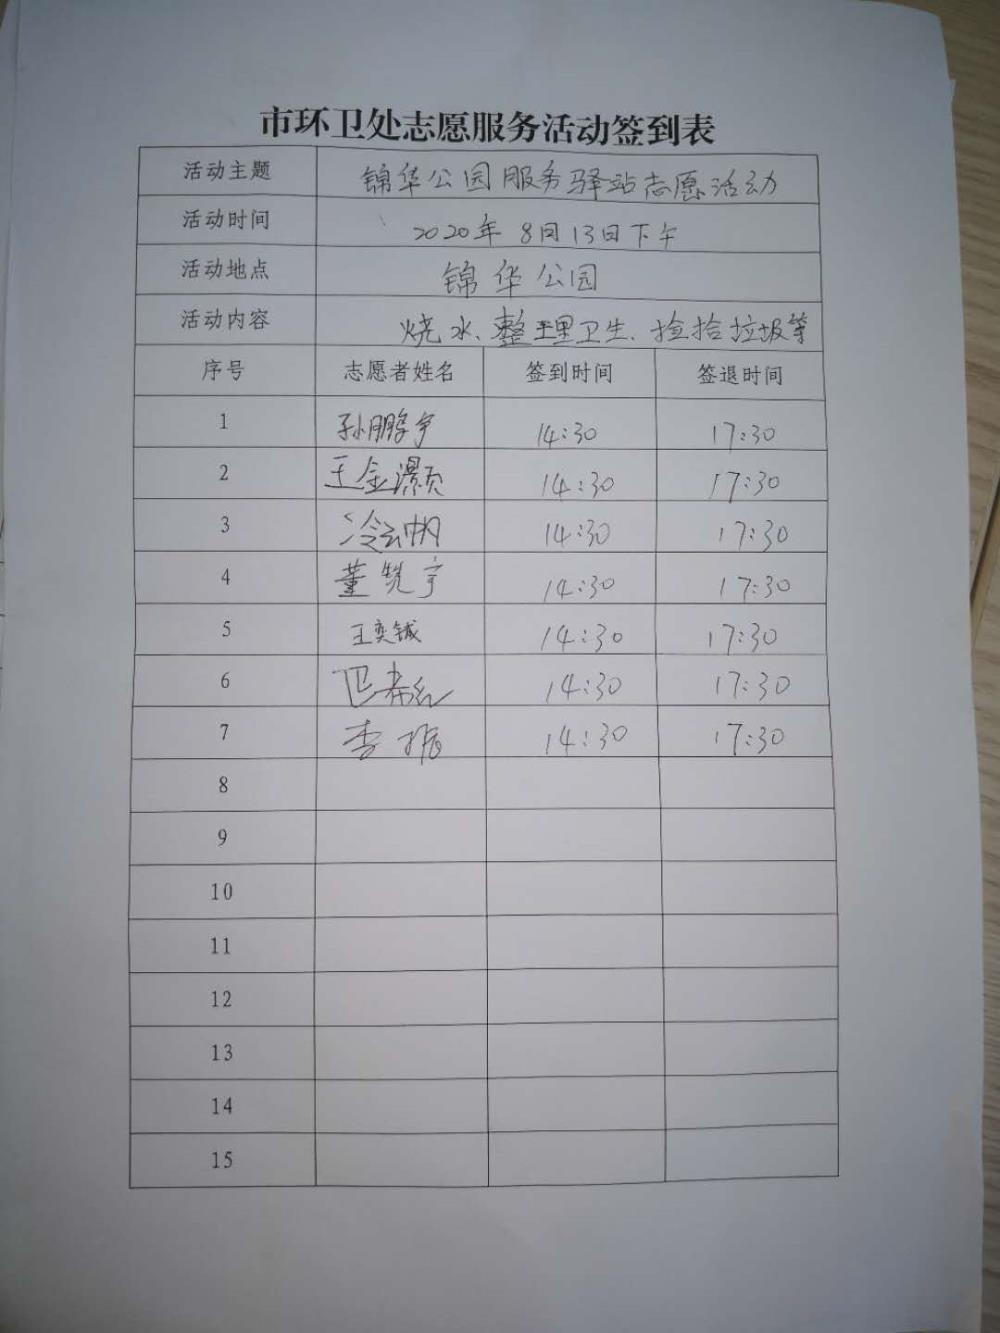 市环卫处志愿服务活动签到表
活动主题 锦华公园服务驿站志愿活动
活动时间 2020年8月13日下午
活动地点 锦华公园
活动内容 烧水、整理卫生、捡拾垃圾等
序号 志愿者姓名 签到时间 签退时间
1 孙鹏宇 14:30 17:30
2 王金灏 14:30 17:30
3 冷云帆 14:30 17:30
4 董兟宇 14:30 17:30
5 王奕铖 14:30 17:30
6 14:30 17:30
7 李振 14:30 17:30
8
9
10
11
12
13
14
15